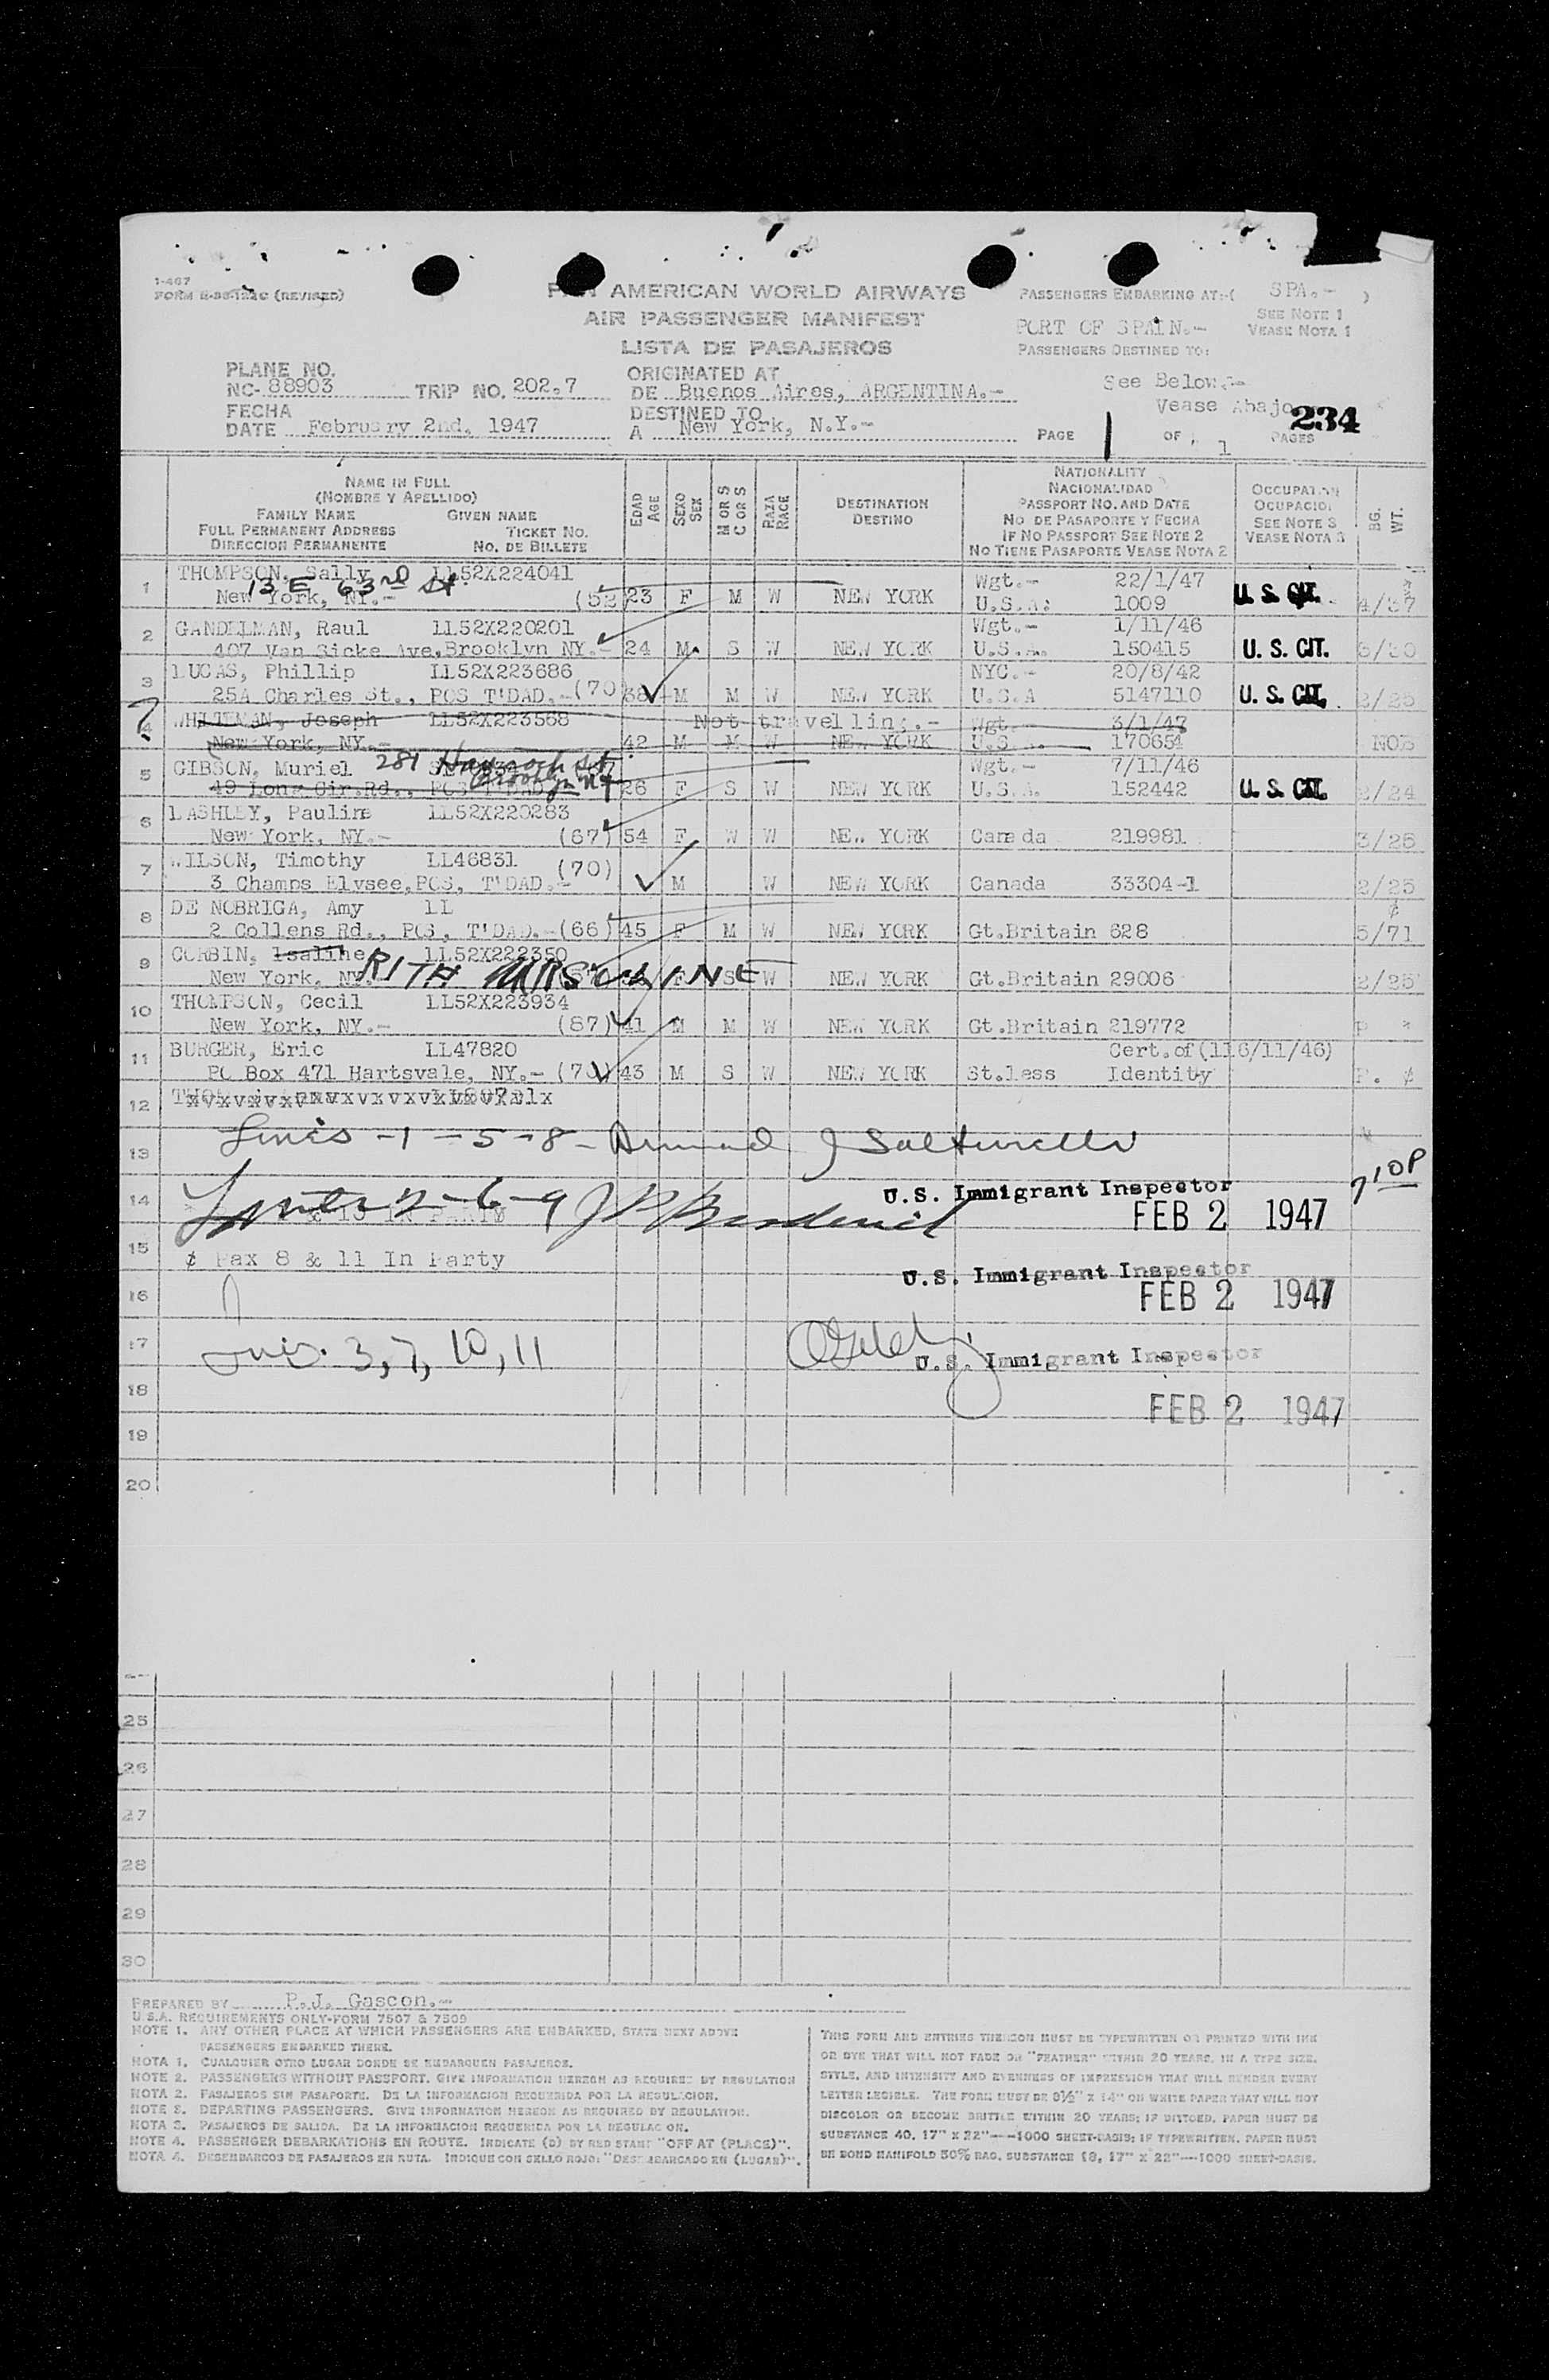 1-467
FORM (REVISED)
PAN AMERICAN WORLD AIRWAYS
AIR PASSENGER MANIFEST
LISTA DE PASAJEROS
PASSENGERS EMBARKING AT:-( SPA.- )
SEE NOTE 1
VEASE NOTA 1
PORT OF SPAIN.-
PASSENGERS DESTINED TO:
See Below.-
Vease Abajo
234
PLANE NO.
NC- 88903 TRIP NO. 202.7
FECHA
DATE February 2nd, 1947
ORIGINATED AT
DE Buenos Aires, ARGENTINA.-
DESTINED TO
A New York, N.Y.-
PAGE 1 OF 1 PAGES
NAME IN FULL
(NOMBRE Y APELLIDO)
FAMILY NAME GIVEN NAME
FULL PERMANENT ADDRESS TICKET NO.
DIRECCION PERMANENTE NO. DE BILLETE
EDAD AGE
SEXO SEX
M OR S C OR S
RAZA RACE
DESTINATION
DESTINO
NATIONALITY
NACIONALIDAD
PASSPORT NO. AND DATE
NO DE PASAPORTE Y FECHA
IF NO PASSPORT SEE NOTE 2
NO TIENE PASAPORTE VEASE NOTA 2
OCCUPATION
OCUPACION
SEE NOTE 3
VEASE NOTA 3
BG. WT.
1 THOMPSON, Sally LL52X224041 Wgt.- 22/1/47
13 E 63RD St
New York, NY.- (52 23 F M W NEW YORK U.S.A. 1009 U. S. CIT. 4/37
2 GANDELMAN, Raul LL52X220201 Wgt.- 1/11/46
407 Van Sicke Ave, Brooklyn NY.- 24 M S W NEW YORK U.S.A. 150415 U. S. CIT. 3/30
3 LUCAS, Phillip LL52X223686 NYC.- 20/8/42
25A Charles St., POS T'DAD.-(70 38 M M W NEW YORK U.S.A 5147110 U. S. CIT. 2/25
4 WHITEMAN, Joseph LL52X223568 Not travelling.- Wgt.- 3/1/47
New York, NY.- 42 M M W NEW YORK U.S.A. 170654 NOB
5 GIBSON, Muriel 281 St Brooklyn NY Wgt.- 7/11/46
49 Long Cir.Rd., POS T'DAD 26 F S W NEW YORK U.S.A. 152442 U. S. CIT. 2/24
6 LASHLEY, Pauline LL52X220283
New York, NY.- (67) 54 F W W NEW YORK Canada 219981 3/26
7 WILSON, Timothy LL46831 (70)
3 Champs Elysee, POS, T'DAD.- M W NEW YORK Canada 33304-1 2/25
8 DE NOBRIGA, Amy LL ¢
2 Collens Rd., POS, T'DAD.-(66) 45 F M W NEW YORK Gt.Britain 628 5/71
9 CORBIN, Isaline LL52X222350
New York, NY. F S W NEW YORK Gt.Britain 29006 2/25
10 THOMPSON, Cecil LL52X223934
New York, NY.- (87) 41 M M W NEW YORK Gt.Britain 219772 P *
11 BURGER, Eric LL47820 Cert.of (116/11/46)
PO Box 471 Hartsvale, NY.- (70) 43 M S W NEW YORK St.less Identity P. ¢
12
13 Lines -1-5-8-
14 Lines 2-6-9
U.S. Immigrant Inspector
FEB 2 1947
7 10P
15 ¢ Pax 8 & 11 In Party
U.S. Immigrant Inspector
16 FEB 2 1947
17 3, 7, 10, 11
U.S. Immigrant Inspector
18 FEB 2 1947
19
20
25
26
27
28
29
30
PREPARED BY P.J. Gascon.-
U.S.A. REQUIREMENTS ONLY-FORM 7507 & 7509
NOTE 1. ANY OTHER PLACE AT WHICH PASSENGERS ARE EMBARKED, STATE NEXT ABOVE
PASSENGERS EMBARKED THERE.
NOTA 1. CUALQUIER OTRO LUGAR DONDE SE EMBARQUEN PASAJEROS.
NOTE 2. PASSENGERS WITHOUT PASSPORT. GIVE INFORMATION HEREON AS REQUIRED BY REGULATION
NOTA 2. PASAJEROS SIN PASAPORTE. DE LA INFORMACION REQUERIDA POR LA REGULACION.
NOTE 3. DEPARTING PASSENGERS. GIVE INFORMATION HEREON AS REQUIRED BY REGULATION.
NOTA 3. PASAJEROS DE SALIDA. DE LA INFORMACION REQUERIDA POR LA REGULACION.
NOTE 4. PASSENGER DEBARKATIONS EN ROUTE. INDICATE (D) BY RED STAMP "OFF AT (PLACE)".
NOTA 4. DESEMBARCOS DE PASAJEROS EN RUTA. INDIQUE CON SELLO ROJO: "DESEMBARCADO EN (LUGAR)".
THIS FORM AND ENTRIES THEREON MUST BE TYPEWRITTEN OR PRINTED WITH INK
OR DYE THAT WILL NOT FADE OR "FEATHER" WITHIN 20 YEARS, IN A TYPE SIZE,
STYLE, AND INTENSITY AND EVENNESS OF IMPRESSION THAT WILL RENDER EVERY
LETTER LEGIBLE. THE FORM MUST BE 8½" X 14" ON WHITE PAPER THAT WILL NOT
DISCOLOR OR BECOME BRITTLE WITHIN 20 YEARS; IF DITTOED, PAPER MUST BE
SUBSTANCE 40, 17" X 22"—1000 SHEET-BASIS; IF TYPEWRITTEN, PAPER MUST
BE BOND MANIFOLD 50% RAG, SUBSTANCE 18, 17" X 22"—1000 SHEET-BASIS.